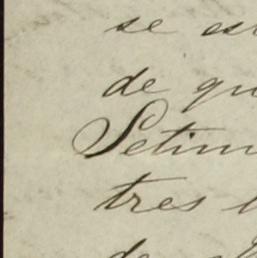 se es
de qu
Setim
tres l
de